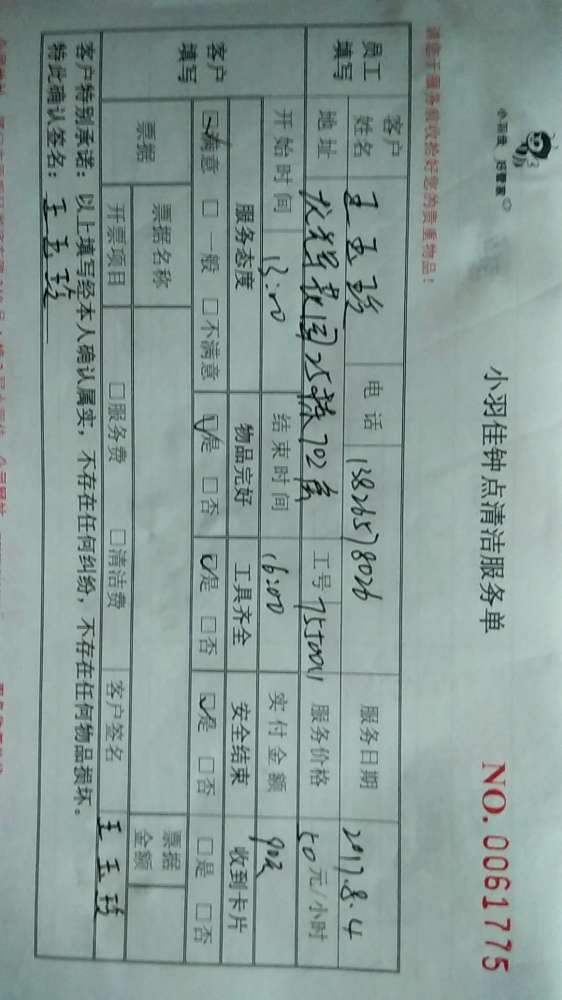 小羽佳 好管家
小羽佳钟点清洁服务单
NO. 0061775
请您于服务前收拾好您的贵重物品！
员工填写 客户姓名 王玉珍 电话 13826578026 服务日期 2017.8.4
地址 25栋702房 工号 755001 服务价格 50元/小时
客户填写 开始时间 13:00 结束时间 16:00 实付金额
服务态度 物品完好 工具齐全 安全结束 收到卡片
☑满意 □一般 □不满意 ☑是 □否 ☑是 □否 ☑是 □否 □是 □否
票据 票据名称 票据金额
开票项目 □服务费 □清洁费 客户签名 王玉珍
客户特别承诺：以上填写经本人确认属实，不存在任何纠纷，不存在任何物品损坏。
特此确认签名：王玉珍